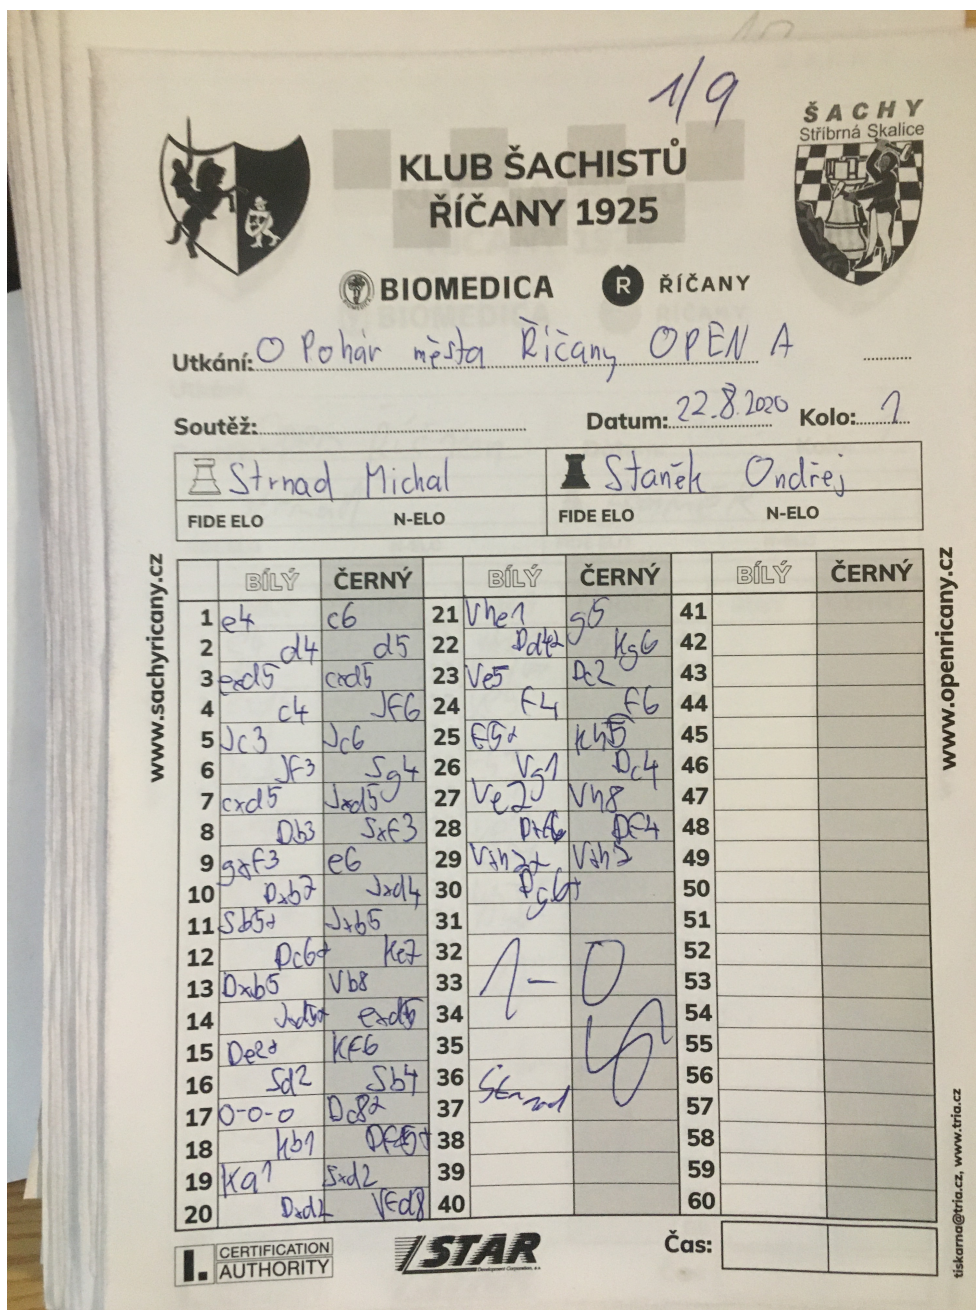 1/9
ŠACHY
Stříbrná Skalice
KLUB ŠACHISTŮ
ŘÍČANY 1925
BIOMEDICA R ŘÍČANY
Utkání: O Pohár města Říčany OPEN A
Soutěž: Datum: 22.8.2020 Kolo: 1
Strnad Michal Staněk Ondřej
FIDE ELO N-ELO FIDE ELO N-ELO
www.sachyricany.cz
www.openricany.cz
BÍLÝ ČERNÝ BÍLÝ ČERNÝ BÍLÝ ČERNÝ
1 e4 c6 21 Vhe1 g5 41
2 d4 d5 22 Dd4+ Kg6 42
3 exd5 cxd5 23 Ve5 Dc2 43
4 c4 Jf6 24 f4 f6 44
5 Jc3 Jc6 25 f5+ Kh5 45
6 Jf3 Sg4 26 Vg1 Dc4 46
7 cxd5 Jxd5 27 Ve2 Vh8 47
8 Db3 Sxf3 28 Dxf6 Df4 48
9 gxf3 e6 29 Vxh2+ Vxh2 49
10 Dxb7 Jxd4 30 Dg6+ 50
11 Sb5+ Jxb5 31 51
12 Dc6+ Ke7 32 52
13 Dxb5 Vb8 33 1-0 53
14 Jxd5+ exd5 34 54
15 De2+ Kf6 35 55
16 Sd2 Sb4 36 Strnad 56
17 0-0-0 Dc8+ 37 57
18 Kb1 Df5+ 38 58
19 Ka1 Sxd2 39 59
20 Dxd2 Vfd8 40 60
I. CERTIFICATION AUTHORITY STAR Čas:
tiskarna@tria.cz, www.tria.cz